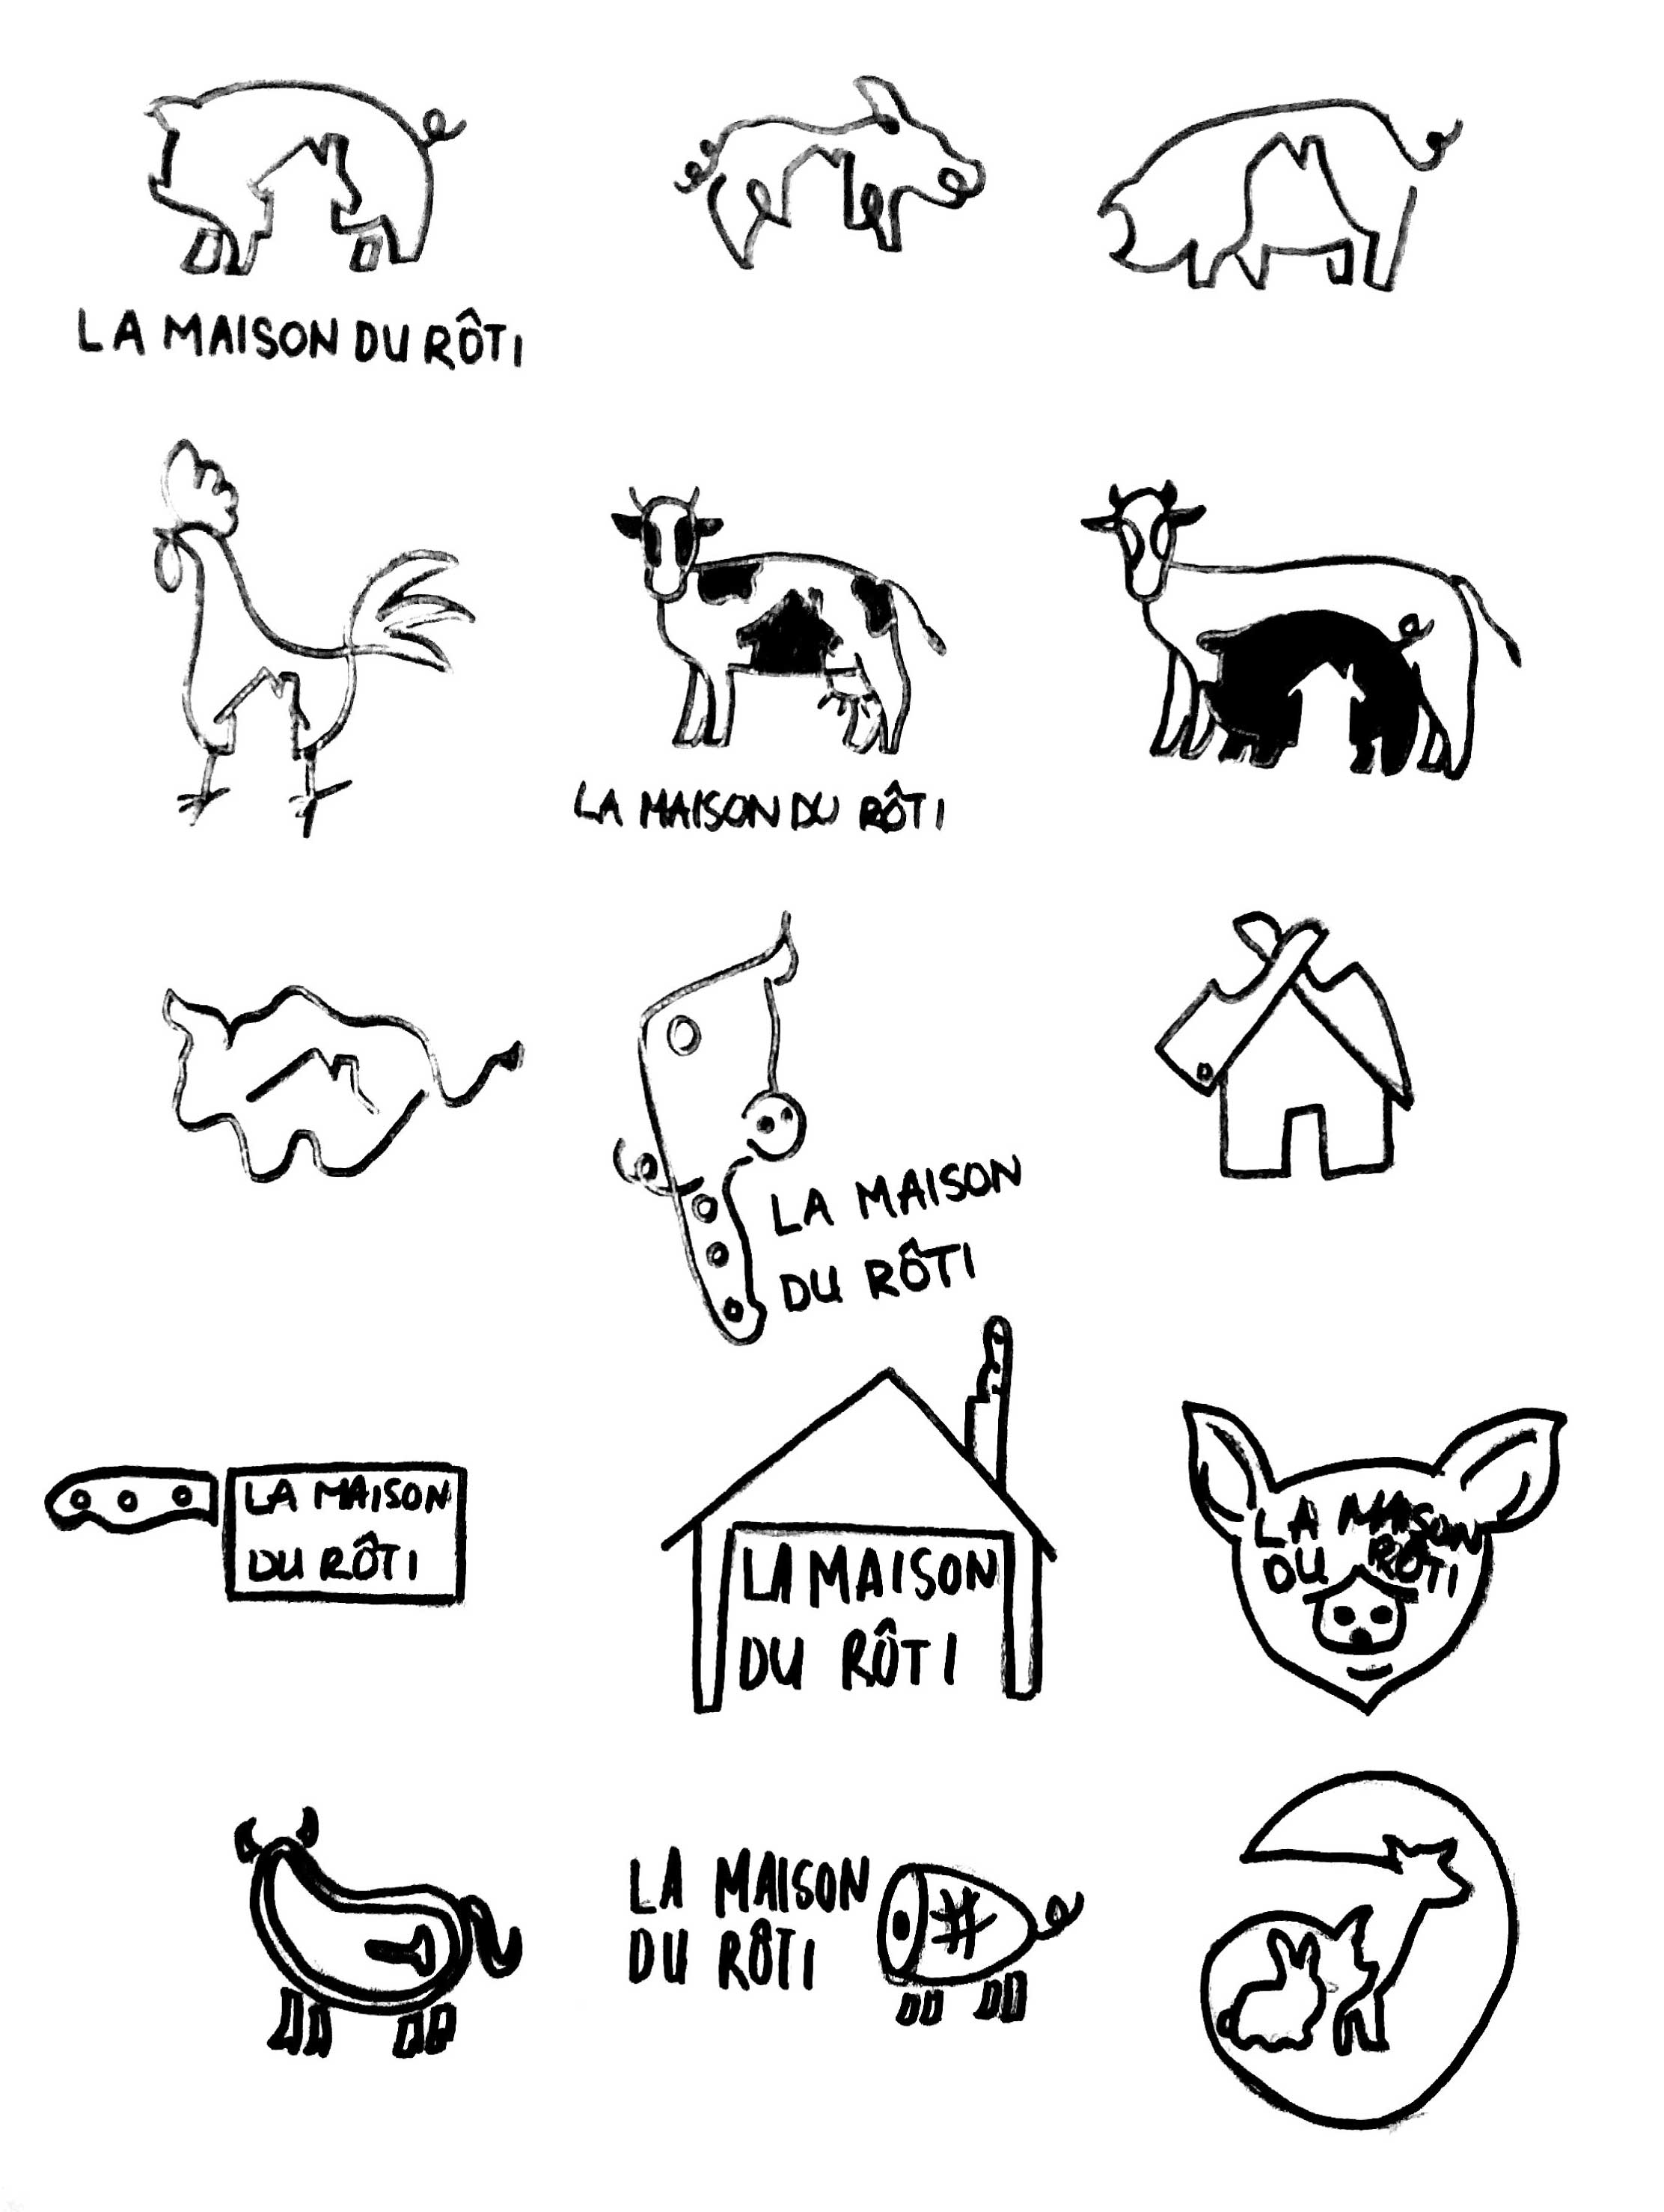 LA MAISON DU RÔTI
LA MAISON DU RÔTI
LA MAISON
DU RÔTI
LA MAISON
DU RÔTI
LA MAISON
DU RÔTI
LA MAISON
DU RÔTI
LA MAISON
DU RÔTI